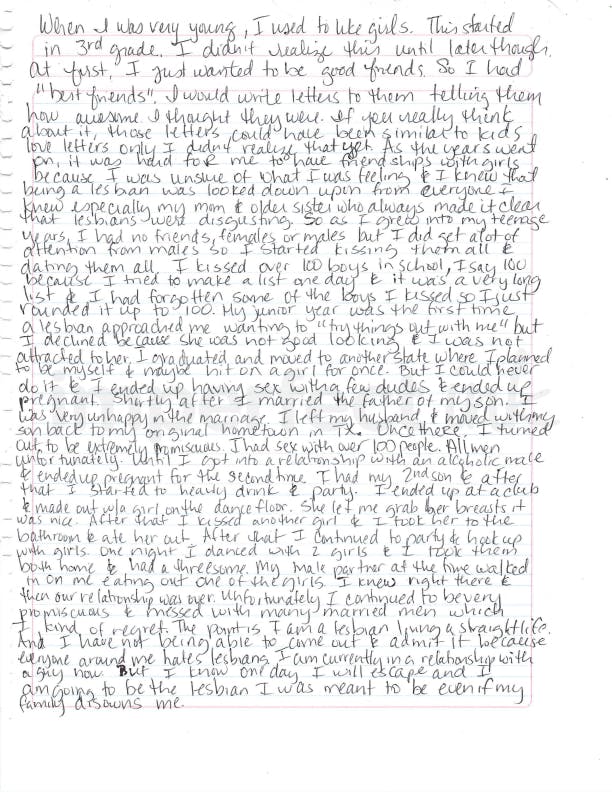 When I was very young, I used to like girls. This started
in 3rd grade. I didn't realize this until later though.
At first, I just wanted to be good friends. So I had
"best friends". I would write letters to them telling them
how awesome I thought they were. If you really think
about it, those letters could have been similar to kids
love letters only I didn't realize that yet. As the years went
on, it was hard for me to have friendships with girls
because I was unsure of what I was feeling & I knew that
being a lesban was looked down upon from everyone I
knew especially my mom & older sister who always made it clear
that lesbians were disgusting. So as I grew into my teenage
years, I had no friends, females or males but I did get alot of
attention from males so I started kissing them all &
dating them all. I kissed over 100 boys in school, I say 100
because I tried to make a list one day & it was a very long
list & I had forgotten some of the boys I kissed so I just
rounded it up to 100. My junior year was the first time
a lesbian approached me wanting to "try things out with me" but
I declined because she was not good looking & I was not
attracted to her. I graduated and moved to another state where I planned
to be myself & maybe hit on a girl for once. But I could never
do it & I ended up having sex with a few dudes & ended up
pregnant. Shortly after I married the father of my son. I
was very unhappy in the marriage. I left my husband, & moved with my
son back to my original hometown in TX. Once there, I turned
out to be extremely promiscuous. I had sex with over 100 people. All men
unfortunately. Until I got into a relationship with an alcoholic male
& ended up pregnant for the second time. I had my 2nd son & after
that I started to heavily drink & party. I ended up at a club
& made out w/a girl on the dance floor. She let me grab her breasts it
was nice. After that I kissed another girl & I took her to the
bathroom & ate her out. After that I continued to party & hook up
with girls. One night I danced with 2 girls & I took them
both home & had a threesome. My male partner at the time walked
in on me eating out one of the girls. I knew right there &
then our relationship was over. Unfortunately I continued to be very
promiscuous & messed with many married men which
I kind of regret. The point is, I am a lesbian living a straight life.
And I have not being able to come out & admit it because
everyone around me hates lesbians. I am currently in a relationship with
a guy now. But I know one day I will escape and I
am going to be the lesbian I was meant to be even if my
family disowns me.